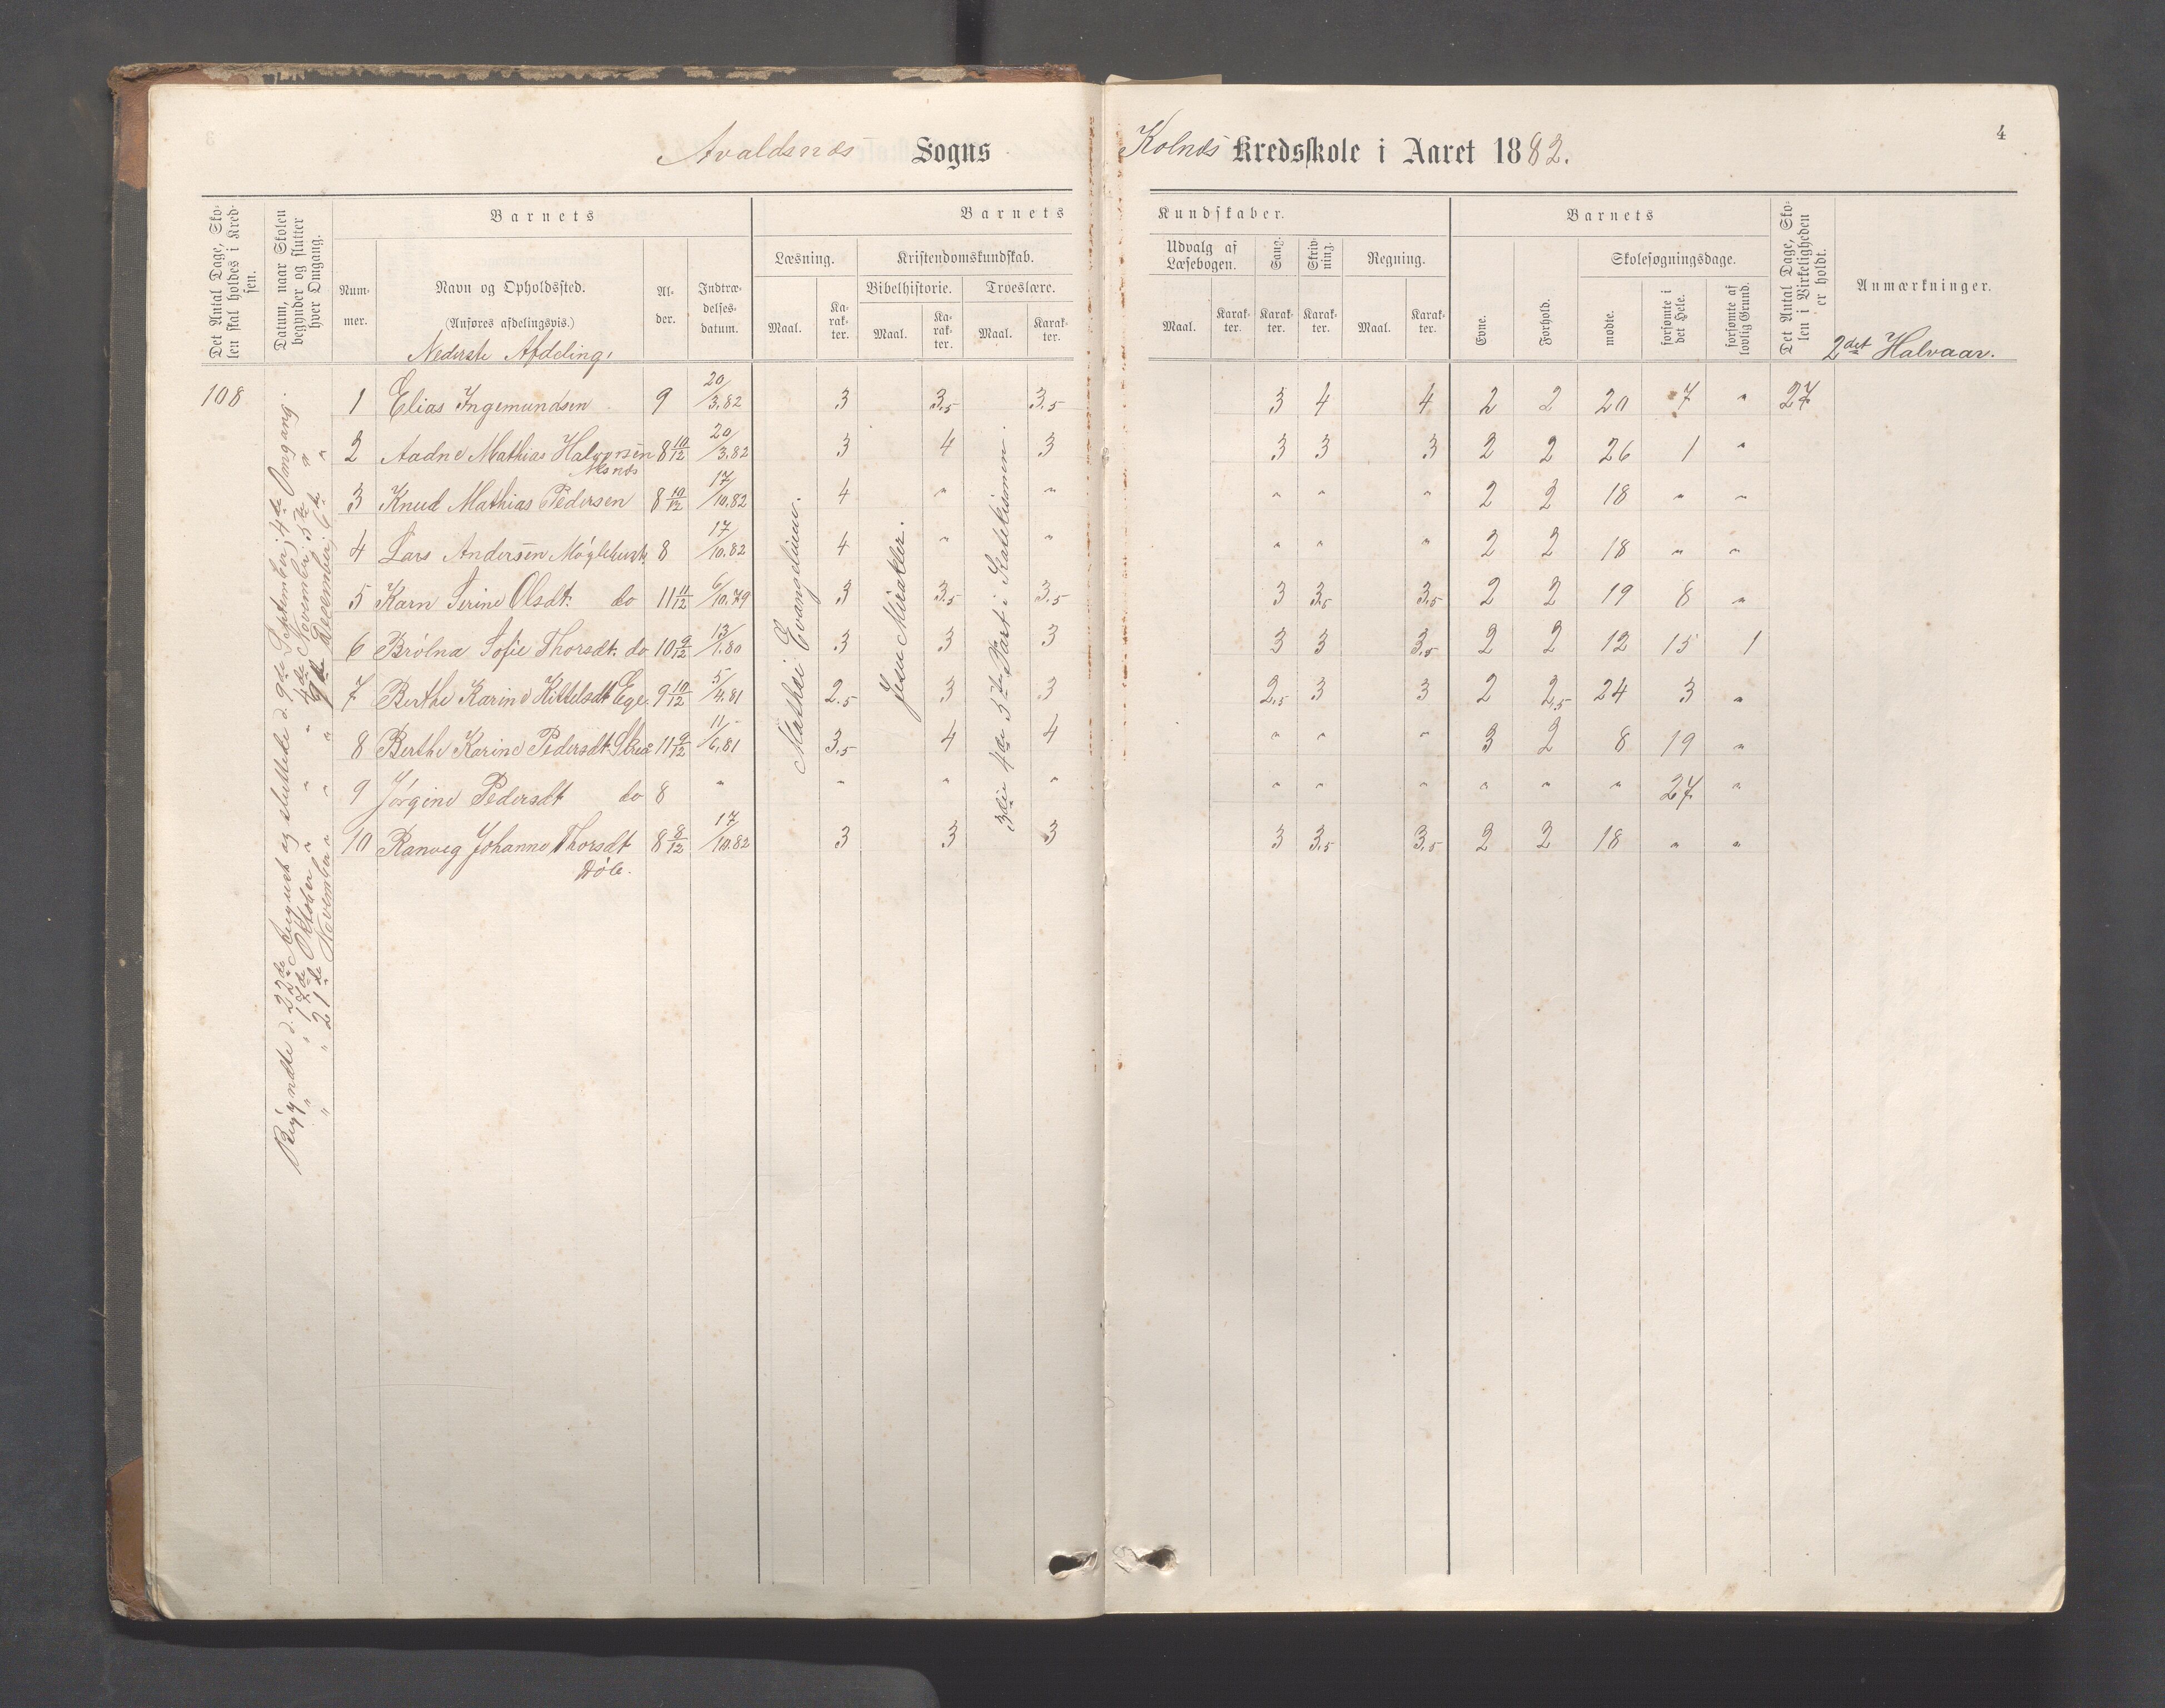 Avaldsnæs Sogns Kolnæs Kredsskole i Aaret 1882.
4
Det Antal Dage, Skolen skal holdes i Kredsen.
Datum, naar Skolen begynder og slutter hver Omgang.
Barnets
Nummer.
Navn og Opholdssted.
(Anføres afdelingsvis.)
Nederste Afdeling.
Alder.
Indtrædelsesdatum.
Barnets Kundskaber.
Læsning.
Maal.
Karakter.
Kristendomskundskab.
Bibelhistorie.
Maal.
Karakter.
Troeslære.
Maal.
Karakter.
Udvalg af Læsebogen.
Maal.
Karakter.
Sang.
Karakter.
Skrivning.
Karakter.
Regning.
Maal.
Karakter.
Barnets
Evne.
Forhold.
Skolesøgningsdage.
mødte.
forsømte i det Hele.
forsømte af lovlig Grund.
Det Antal Dage, Skolen i Virkeligheden er holdt.
Anmærkninger.
2det Halvaar.
108
Begyndte d. 22de August og sluttede d. 9de September; 4de Omgang.
" " 17de Oktober " " " 4de November; 5te "
" " 21de November " " " 9de December; 6te "
Mathæi Evangelium.
Jesu Mirakler.
3die 4de 5te Part i Katekismen.
1 Elias Ingemundsen 9 20/3.82 3 3.5 3.5 3 4 4 2 2 20 7 " 27
2 Aadne Mathias Halvorsen 8 10/12 20/3.82 3 4 3 3 3 3 2 2 26 1 "
3 Knud Mathias Pedersen 8 10/12 17/10.82 4 " " " " " 2 2 18 " "
4 Lars Andersen 8 17/10.82 4 " " " " " 2 2 18 " "
5 Karn Serine Olsdt. do 11 11/12 6/10.79 3 3.5 3.5 3 3.5 3.5 2 2 19 8 "
6 Brölna Sofie Thorsdt. do 10 9/12 13/1.80 3 3 3 3 3 3.5 2 2 12 15 1
7 Berthe Karine Kittelsdt Ege. 9 10/12 5/4.81 2.5 3 3 2.5 3 3 2 2.5 24 3 "
8 Berthe Karine Pedersdt. 11 9/12 11/6.81 3.5 4 4 " " " 3 2 8 19 "
9 Jørgine Pedersdt do 8 " " " " " " " " " " 27 "
10 Ranveg Johanne Thorsdt 8 8/12 17/10.82 3 3 3 3 3.5 3.5 2 2 18 " "